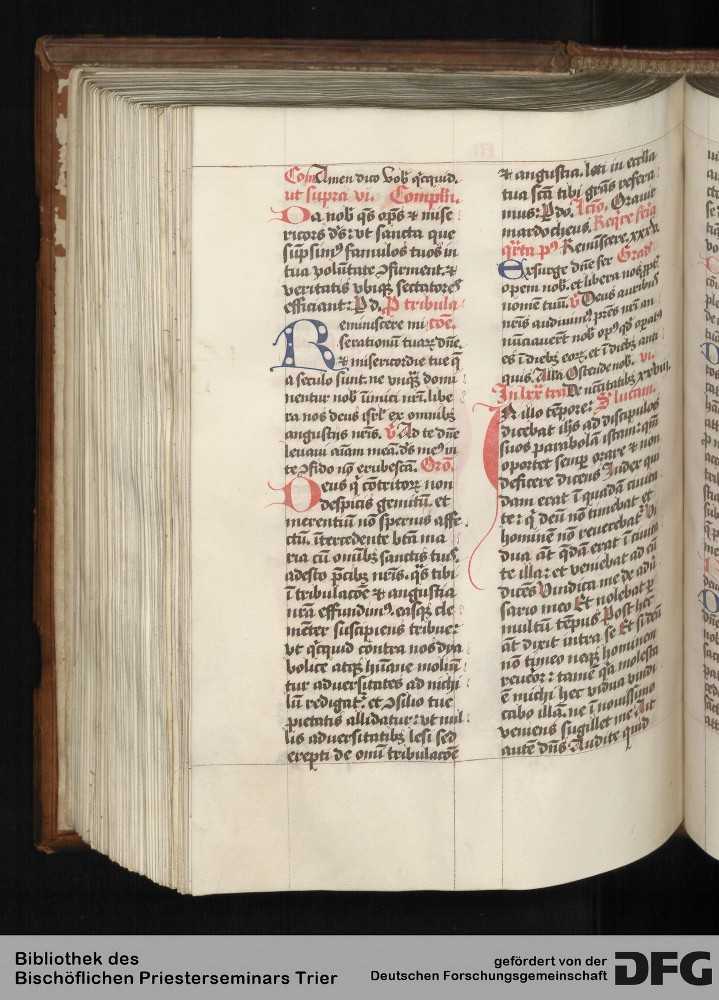 Com̄ Amen dico vob̄ q̄cquid.
ut supra vi. Compl̄n.
Da nob̄ q̄s op̄s ⁊ mise
ricors d̄s: vt sancta que
sūpsim⁹ famulos tuos in
tua volūtate ꝯfirment. ⁊
veritatis vbiqꝫ sectatores
efficiant: P̲ d. P̄ tribula
Reminiscere mi com̄.
serationū tuaꝝ dn̄e.
⁊ misericordie tue q̄
a seculo sunt. ne vnq̄ꝫ domi
nentur nob̄ inimici nr̄i. libe
ra nos deus isrl̄ ex omnibꝫ
angustiis nr̄is. v̄ Ad te dn̄e
levavi aīam meā. d̄s me⁹ in
te ꝯfido nō erubescā. Orō.
Deus q̄ cōtritoꝝ non
despicis gemitū. et
merentiū nō spernis affe
ctū. ītercedente btā ma
ria cū om̄ibꝫ sanctis tuis.
adesto p̄cibꝫ nr̄is. q̄s tibi
ī tribulacōe ⁊ angustia
nr̄a effundim⁹. easqꝫ cle
mēter suscipiens tribue:
vt q̄cquid contra nos dya
bolice atqꝫ hūane moliūt
tur adversitates ad nichi
lū redigat̄. et ꝯsilio tue
pietatis allidatur: vt nul
lis adversitatibꝫ lesi sed
erepti de om̄i tribulacōe
⁊ angustia. leti in eccl̄ia
tua scā tibi gr̄as refera
mus: P̲ do. Lc̄io. Oravit
mardocheus. Req̄re fr̄ia
q̄rta p⁹ Reminiscere. xxxv.
Exsurge dn̄e fer Grad̄
opem nob̄. et libera nos ꝓpt̄
nomen tuū. v̄ Deus auribus
nr̄is audivim⁹. pr̄es nr̄i an
nūciaver̄t nob̄ op⁹ q̄ opat⁹
es ī diebꝫ eoꝝ. et ī diebꝫ anti
quis. All̄a Ostende nob̄. vi.
In lxx̄ tra De nc̄itatibꝫ xxviii.
In illo tēpore: S̄ lucam.
dicebat ih̄s ad discipulos
suos parabolā istam: qm̄
oportet semꝑ orare ⁊ non
deficere dicens Iudex qui
dam erat ī quadā civita
te: q̄ deū nō timebat et
hominē nō reverebat̄ Vi
dua aūt q̄dā erat ī civita
te illa: et veniebat ad eū
dicēs Vindica me de adv̄
sario meo Et nolebat ꝑ
multū tēpus Post hec
aūt dixit intra se Et si deū
nō timeo neqꝫ hominem
revēor: tamē q̄a molesta
ē michi hec vidua vindi
cabo illā. ne ī novissimo
veniens sugillet me Ait
autē dn̄s Audite quid
Bibliothek des
Bischöflichen Priesterseminars Trier
gefördert von der
Deutschen Forschungsgemeinschaft
DFG